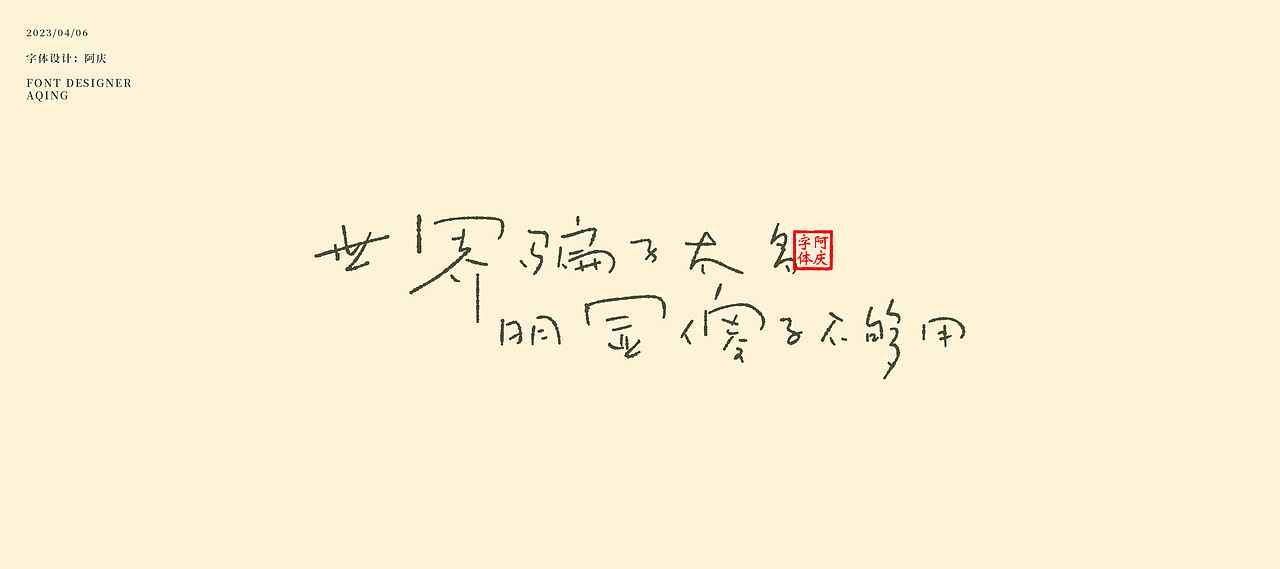 2023/04/06
字体设计：阿庆
FONT DESIGNER
AQING
世界骗子太多
明显傻子不够用
阿庆
字体